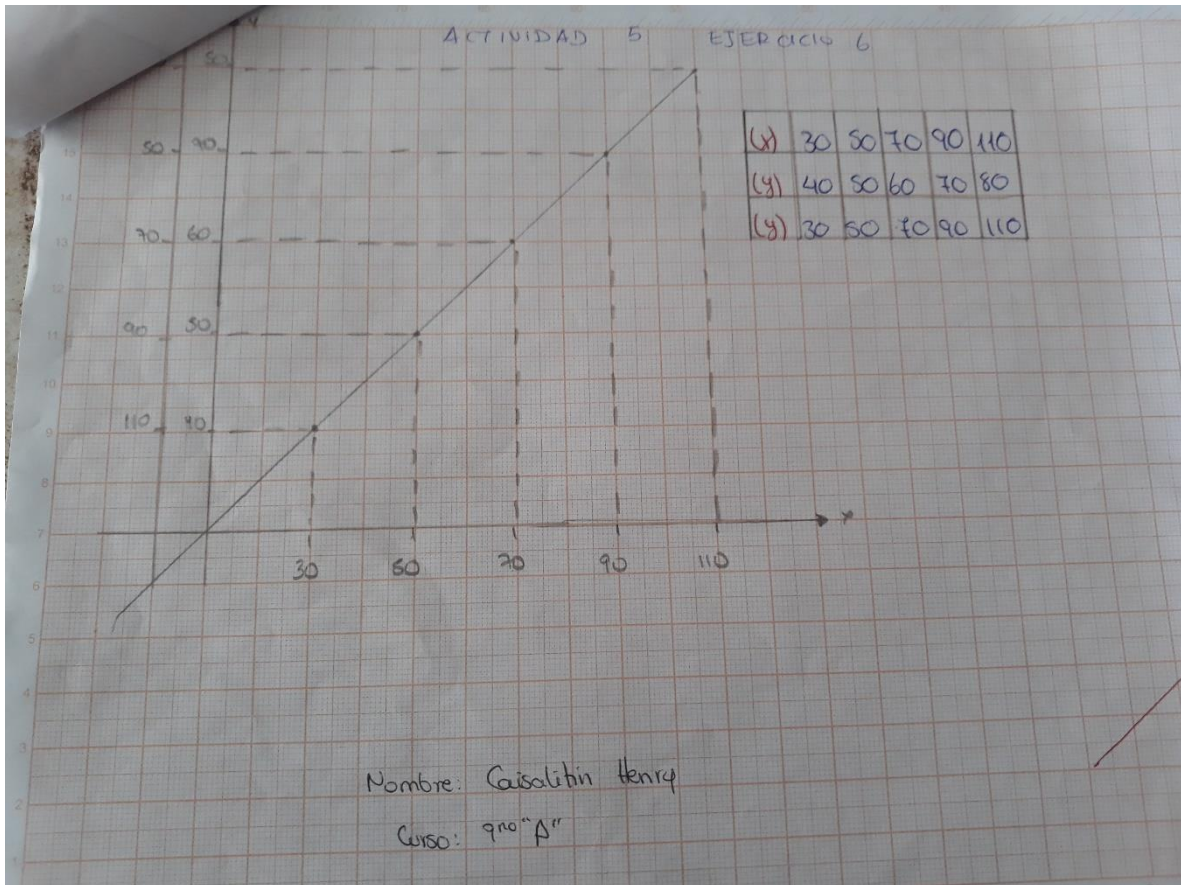 ACTIVIDAD 5 EJERCICIO 6
(x) 30 50 70 90 110
(y) 40 50 60 70 80
(y) 30 50 70 90 110
50 90
70 60
90 50
110 40
x
30 50 70 90 110
15
14
13
12
11
10
9
8
7
6
5
4
3
2
1
Nombre: Caisalitin Henry
Curso: 9no "A"